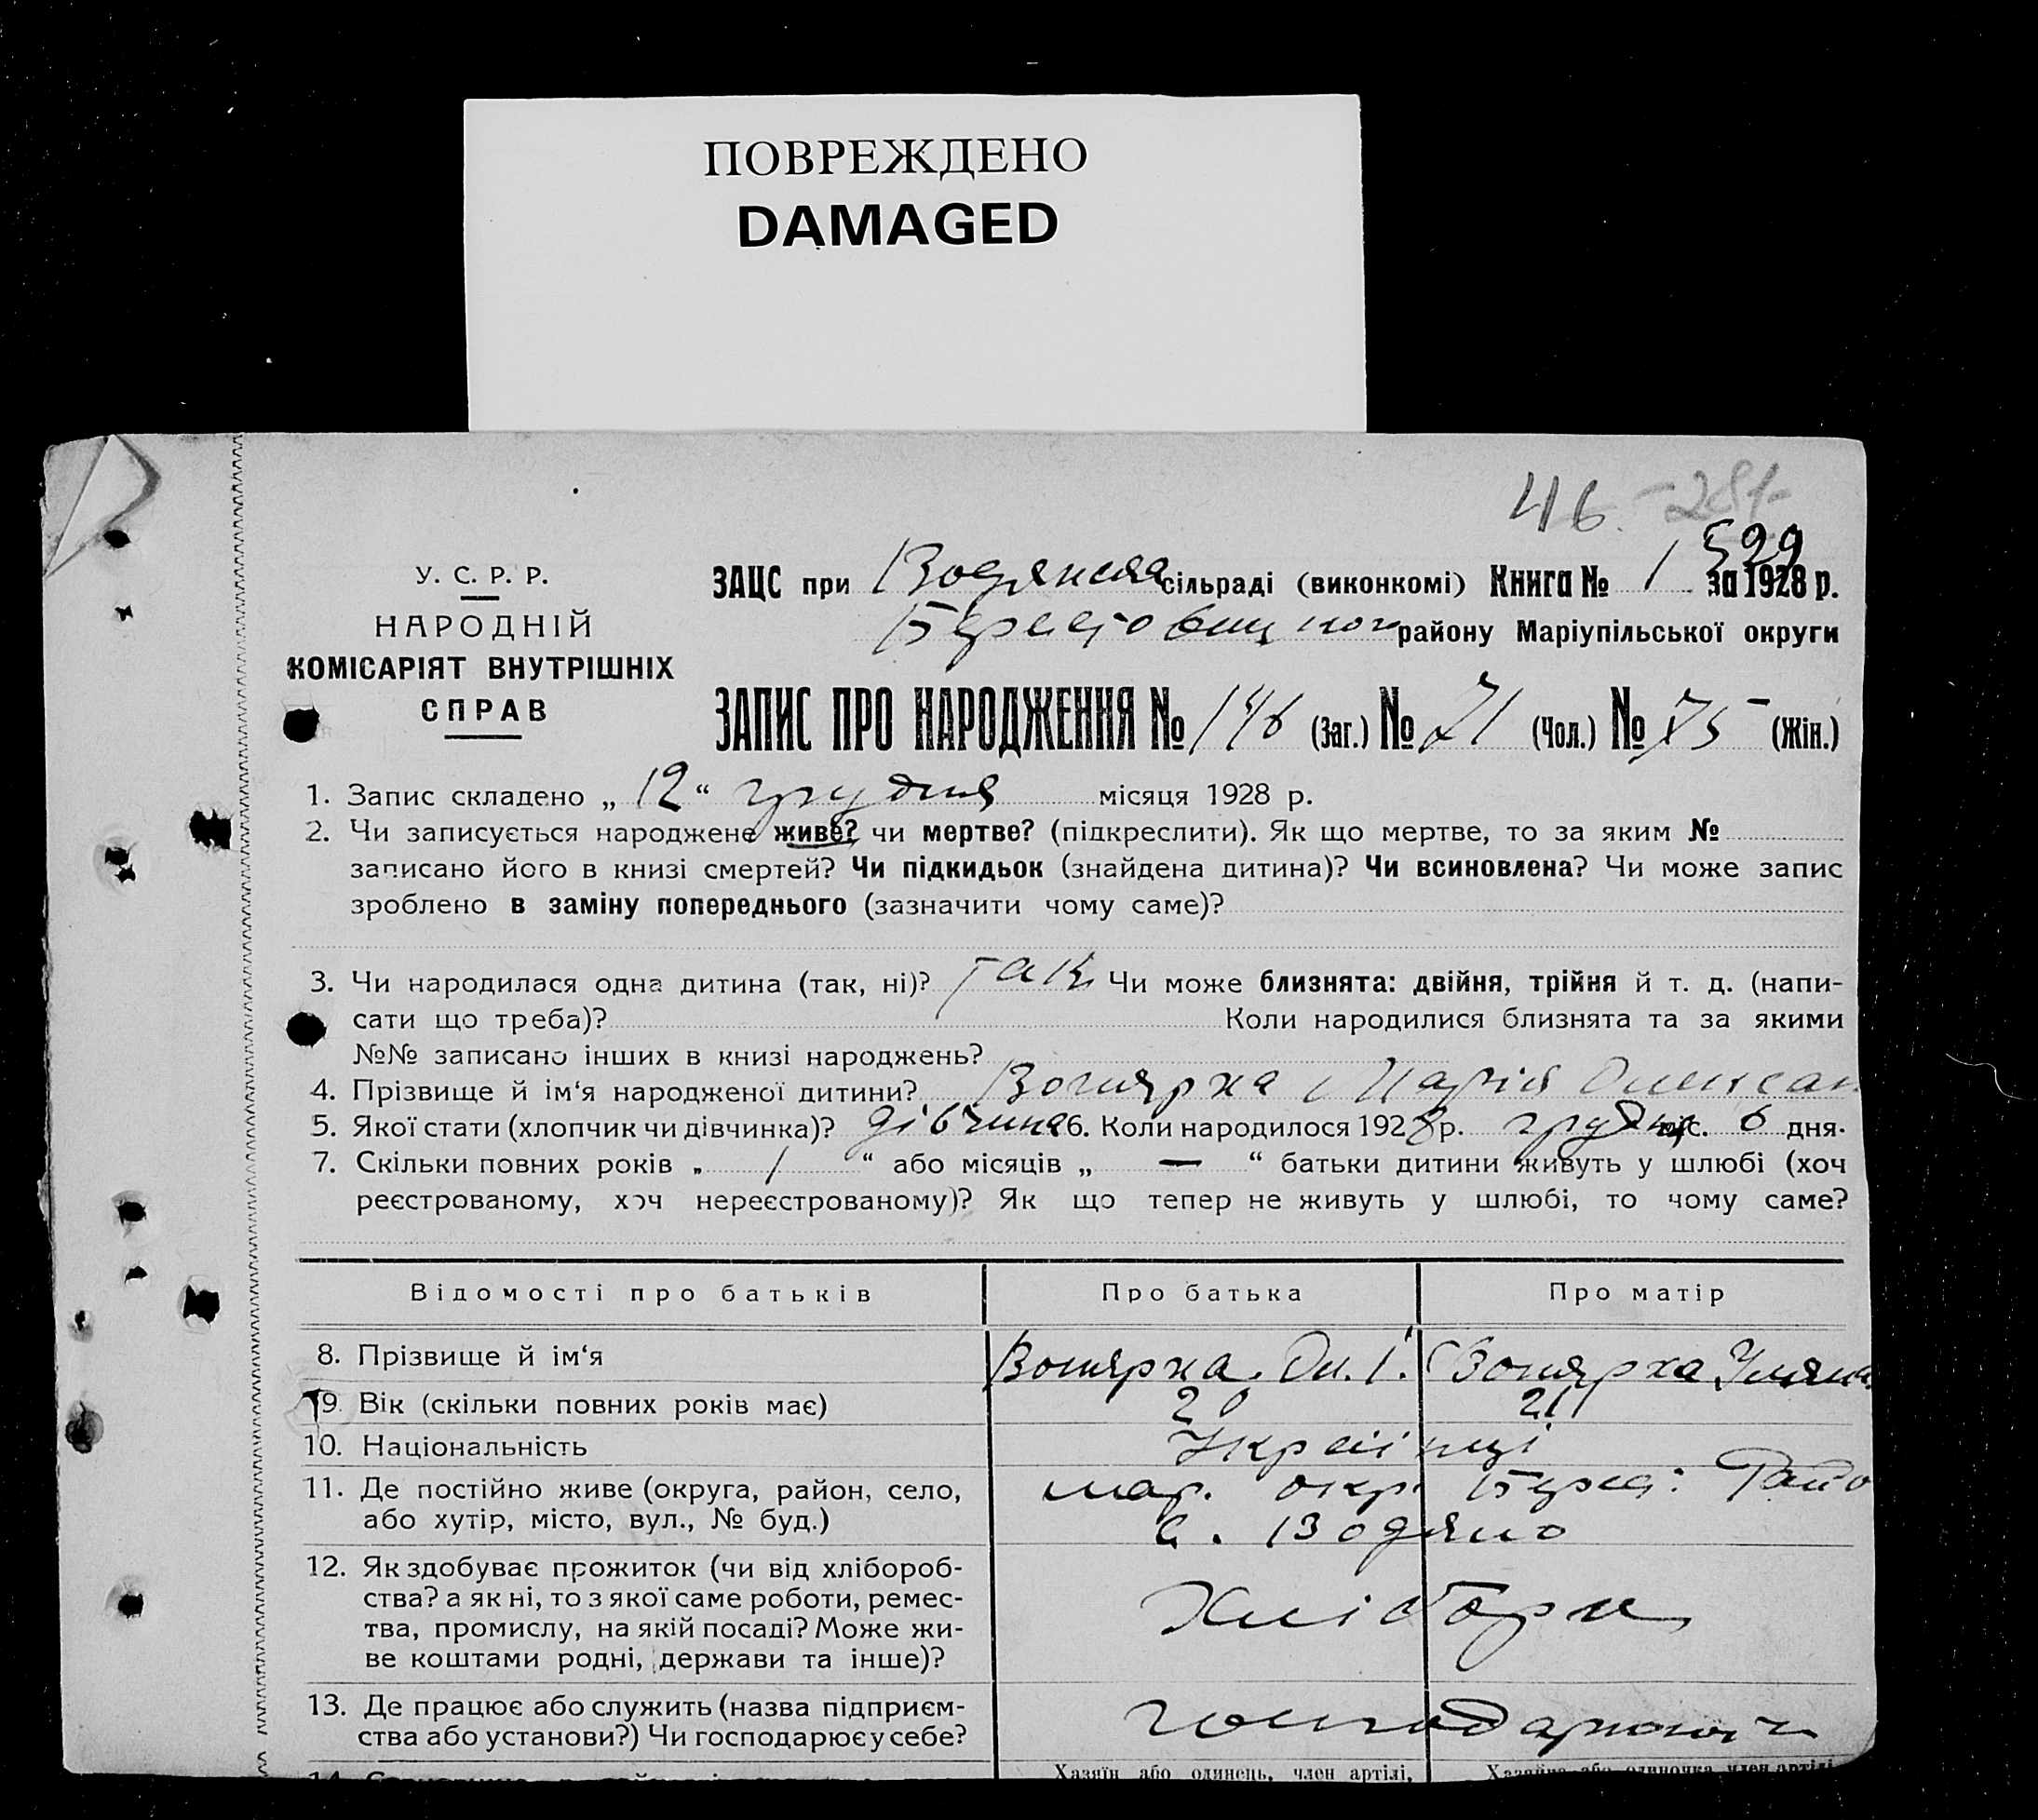 ПОВРЕЖДЕНО
DAMAGED
46. -281-
529
У. С. Р. Р.
НАРОДНІЙ
КОМІСАРІЯТ ВНУТРІШНІХ
СПРАВ
ЗАЦС при Водянська сільраді (виконкомі) Книга № 1 за 1928 р.
району Маріупільської округи
ЗАПИС ПРО НАРОДЖЕННЯ № 146 (Заг.) № 71 (Чол.) № 75 (Жін.)
1. Запис складено „ 12 “ грудня місяця 1928 р.
2. Чи записується народжене живе? чи мертве? (підкреслити). Як що мертве, то за яким №
записано його в книзі смертей? Чи підкидьок (знайдена дитина)? Чи всиновлена? Чи може запис
зроблено в заміну попереднього (зазначити чому саме)?
3. Чи народилася одна дитина (так, ні)? Так Чи може близнята: двійня, трійня й т. д. (напи-
сати що треба)? Коли народилися близнята та за якими
№№ записано інших в книзі народжень?
4. Прізвище й ім‘я народженої дитини? Марія Олексан
5. Якої стати (хлопчик чи дівчинка)? дівчина 6. Коли народилося 1928 р. грудня міс. 6 дня.
7. Скільки повних років „ 1 “ або місяців „ — “ батьки дитини живуть у шлюбі (хоч
реєстрованому, хоч нереєстрованому)? Як що тепер не живуть у шлюбі, то чому саме?
Відомості про батьків Про батька Про матір
8. Прізвище й ім‘я
9. Вік (скільки повних років має) 20 21
10. Національність Українці
11. Де постійно живе (округа, район, село, мар. окр. Берес: Райо
або хутір, місто, вул., № буд.) с. Водяно
12. Як здобуває прожиток (чи від хлібороб-
ства? а як ні, то з якої саме роботи, ремес- Хлібороби
тва, промислу, на якій посаді? Може жи-
ве коштами родні, держави та інше)?
13. Де працює або служить (назва підприєм-
ства або установи?) Чи господарює у себе?
Хазяїн або одинець, член артілі,